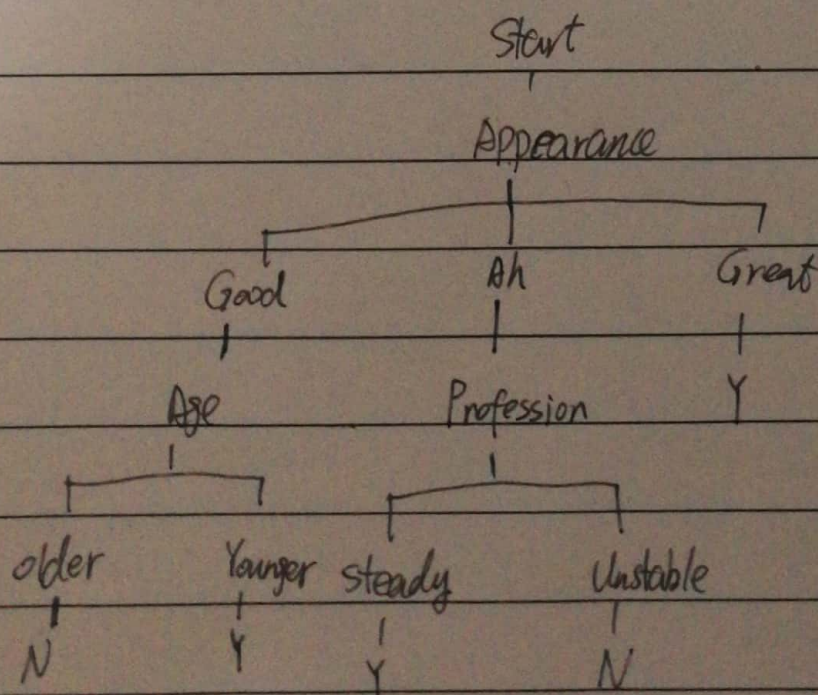 Start
Appearance
Good Ah Great
Age Profession Y
older Younger steady Unstable
N Y Y N